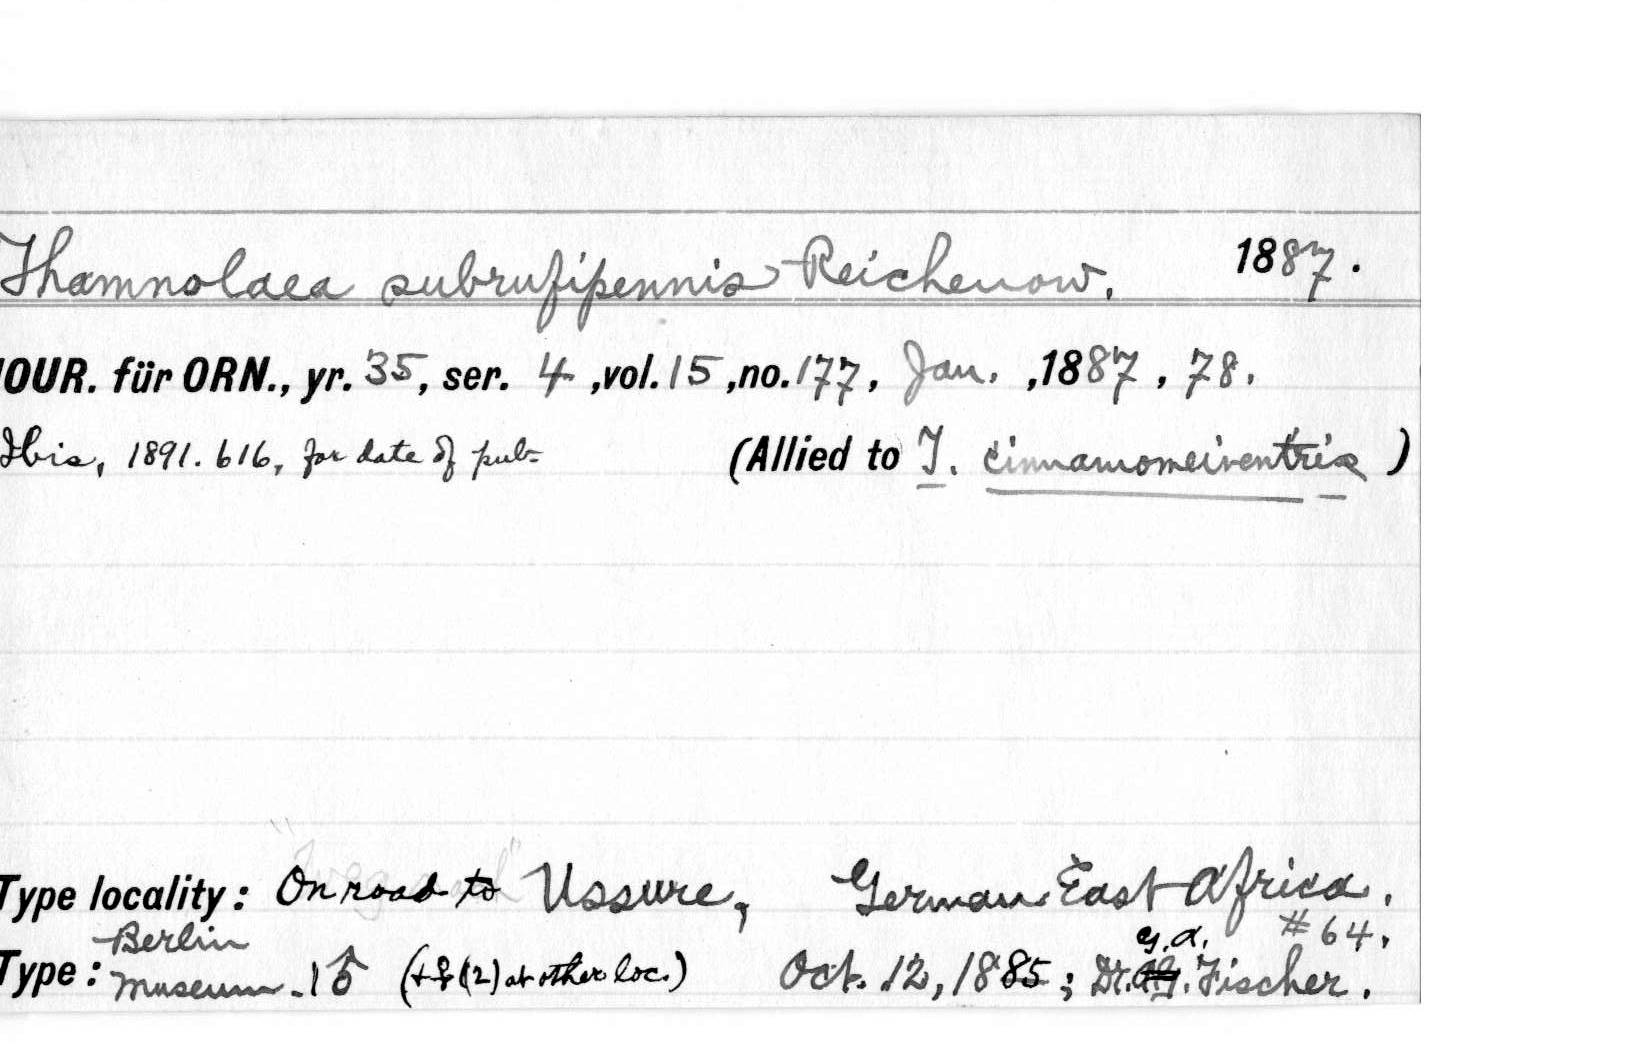 Thamnolaea subrufipennis Reichenow. 1887.
JOUR. für ORN., yr. 35, ser. 4, vol. 15, no. 177, Jan., 1887, 78.
Ibis, 1891. 616, for date of pub- (Allied to T. cinnamomeiventris)
Type locality: On road to Ussure, German East Africa.
Berlin G.A. #64.
Type: Museum. 1 ♂ (+ ♀ (2) at other loc.) Oct. 12, 1885; Dr. Fischer.